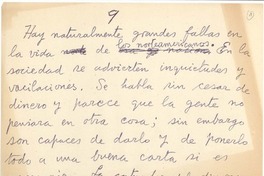 9
Hay naturalmente, grandes fallas en
la vida de los norteamericanos. En la
sociedad se advierten inquietudes y
vacilaciones. Se habla sin cesar de
dinero y parece que la gente no
pensara en otra cosa; sin embargo
son capaces de darlo y de ponerlo
todo a una buena carta si es